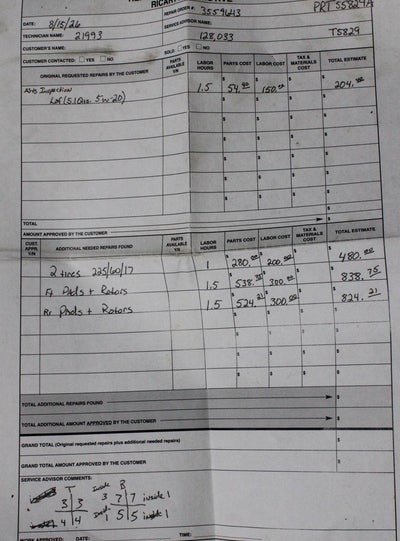 REPAIR ORDER #: 3559643
PRT 55829A
DATE: 8/15/26
SERVICE ADVISOR NAME:
TECHNICIAN NAME: 21993
128,033
T5829
CUSTOMER'S NAME:
SOLD: YES NO
CUSTOMER CONTACTED: YES NO
ORIGINAL REQUESTED REPAIRS BY CUSTOMER
PARTS AVAILABLE Y/N
LABOR HOURS
PARTS COST
LABOR COST
TAX & MATERIALS COST
TOTAL ESTIMATE
Inspection 1.5 $ 54.00 $ 150.00 $ $ 204.00
LOF (5.1 Qts. 5w20)
TOTAL
AMOUNT APPROVED BY THE CUSTOMER
CUST. APPR. Y/N
ADDITIONAL NEEDED REPAIRS FOUND
PARTS AVAILABLE Y/N
LABOR HOURS
PARTS COST
LABOR COST
TAX & MATERIALS COST
TOTAL ESTIMATE
2 tires 225/60/17 1 $ 280.00 $ 200.00 $ $ 480.00
Ft Pads + Rotors 1.5 $ 538.75 $ 300.00 $ $ 838.75
Rr Pads + Rotors 1.5 $ 524.21 $ 300.00 $ $ 824.21
TOTAL ADDITIONAL REPAIRS FOUND
TOTAL ADDITIONAL AMOUNT APPROVED BY THE CUSTOMER
GRAND TOTAL (Original requested repairs plus additional needed repairs)
GRAND TOTAL AMOUNT APPROVED BY THE CUSTOMER
SERVICE ADVISOR COMMENTS:
T inside B
3 3 3 7 7 inside 1
4 4 inside 1 5 5 inside 1
WORK APPROVED: DATE: TIME: